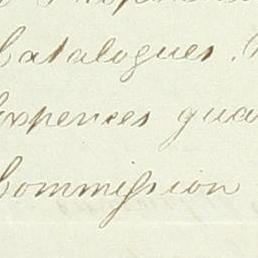 Catalogues.
Expences
Commiſsion